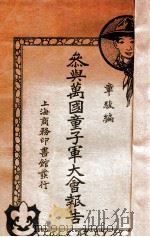 章駿編
參與萬國童子軍大會報吿
上海商務印書館發行